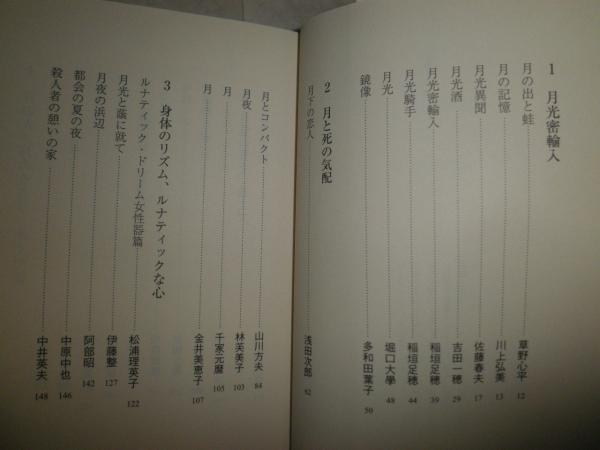 1 月光密輸入
月の出と蛙 草野心平 12
月の記憶 川上弘美 13
月光異聞 佐藤春夫 17
月光酒 吉田一穂 29
月光密輸入 稲垣足穂 39
月光騎手 稲垣足穂 44
月光 堀口大學 48
鏡像 多和田葉子 50
2 月と死の気配
月下の恋人 浅田次郎 52
月とコンパクト 山川方夫 84
月夜 林芙美子 103
月 千家元麿 105
月 金井美恵子 107
3 身体のリズム、ルナティックな心
ルナティック・ドリーム女性器篇 松浦理英子 122
月光と蔭に就て 伊藤整 127
月夜の浜辺 阿部昭 142
都会の夏の夜 中原中也 146
殺人者の憩いの家 中井英夫 148